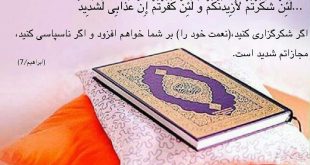 ...لَئِن شَكَرْتُمْ لأَزِيدَنَّكُمْ وَ لَئِن كَفَرْتُمْ إِنَّ عَذَابِي لَشَدِيد
اگر شکرگزاری کنید،(نعمت خود را) بر شما خواهم افزود و اگر ناسپاسی کنید،
مجازاتم شدید است.
(ابراهیم/7)